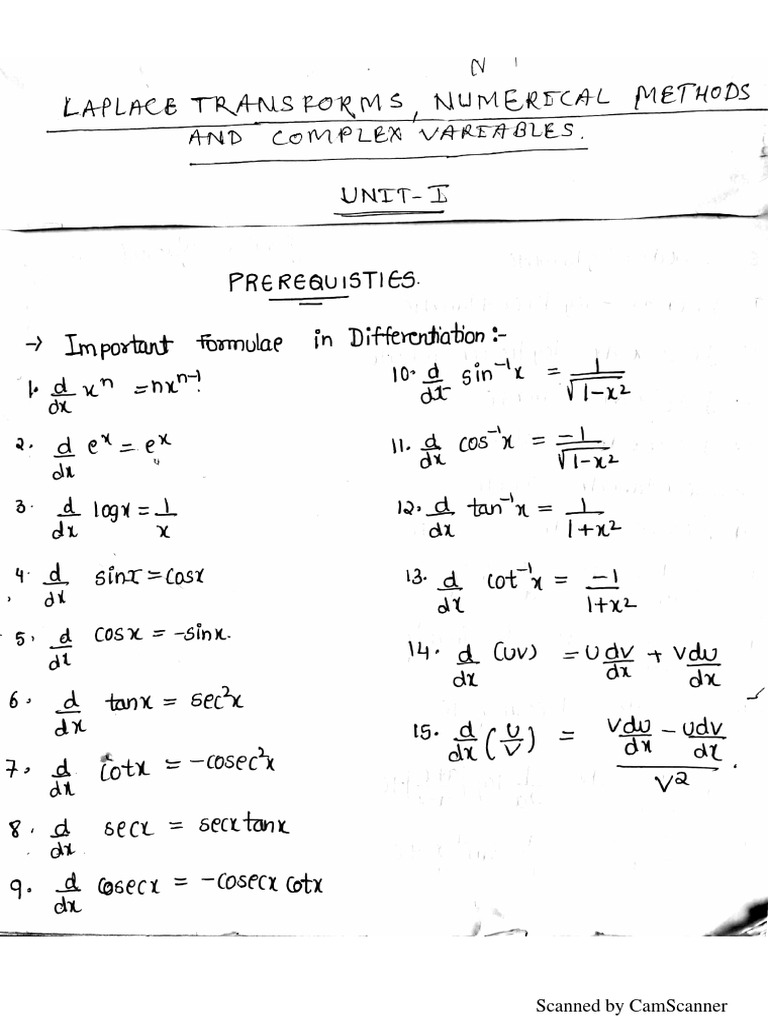 N
LAPLACE TRANSFORMS, NUMERICAL METHODS
AND COMPLEX VARIABLES.
UNIT-I
PREREQUISTIES.
→ Important Formulae in Differentiation:-
1. d/dx xⁿ = nxⁿ⁻¹
2. d/dx eˣ = eˣ
3. d/dx logx = 1/x
4. d/dx sinx = cosx
5. d/dx cosx = -sinx.
6. d/dx tanx = sec²x
7. d/dx cotx = -cosec²x
8. d/dx secx = secx tanx
9. d/dx cosecx = -cosecx cotx
10. d/dx sin⁻¹x = 1/√(1-x²)
11. d/dx cos⁻¹x = -1/√(1-x²)
12. d/dx tan⁻¹x = 1/(1+x²)
13. d/dx cot⁻¹x = -1/(1+x²)
14. d/dx (uv) = u dv/dx + v du/dx
15. d/dx (u/v) = (v du/dx - u dv/dx)/v².
Scanned by CamScanner